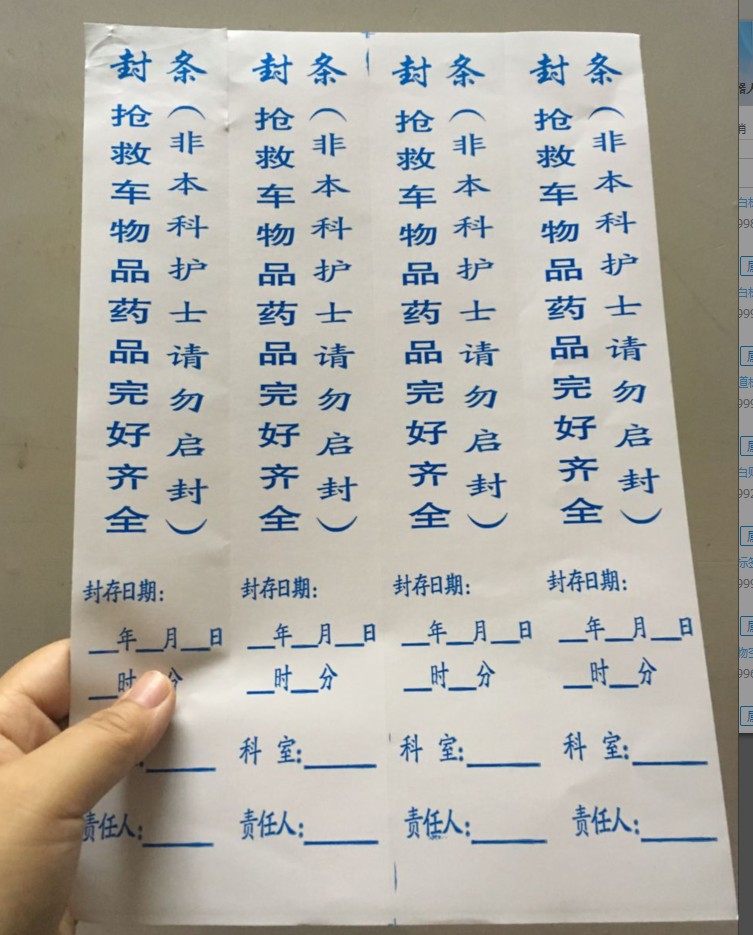 封条
抢救车物品药品完好齐全
（非本科护士请勿启封）
封存日期：
__年__月__日
__时__分
：____
责任人：____
封条
抢救车物品药品完好齐全
（非本科护士请勿启封）
封存日期：
__年__月__日
__时__分
科 室：____
责任人：____
封条
抢救车物品药品完好齐全
（非本科护士请勿启封）
封存日期：
__年__月__日
__时__分
科 室：____
责任人：____
封条
抢救车物品药品完好齐全
（非本科护士请勿启封）
封存日期：
__年__月__日
__时__分
科 室：____
责任人：____